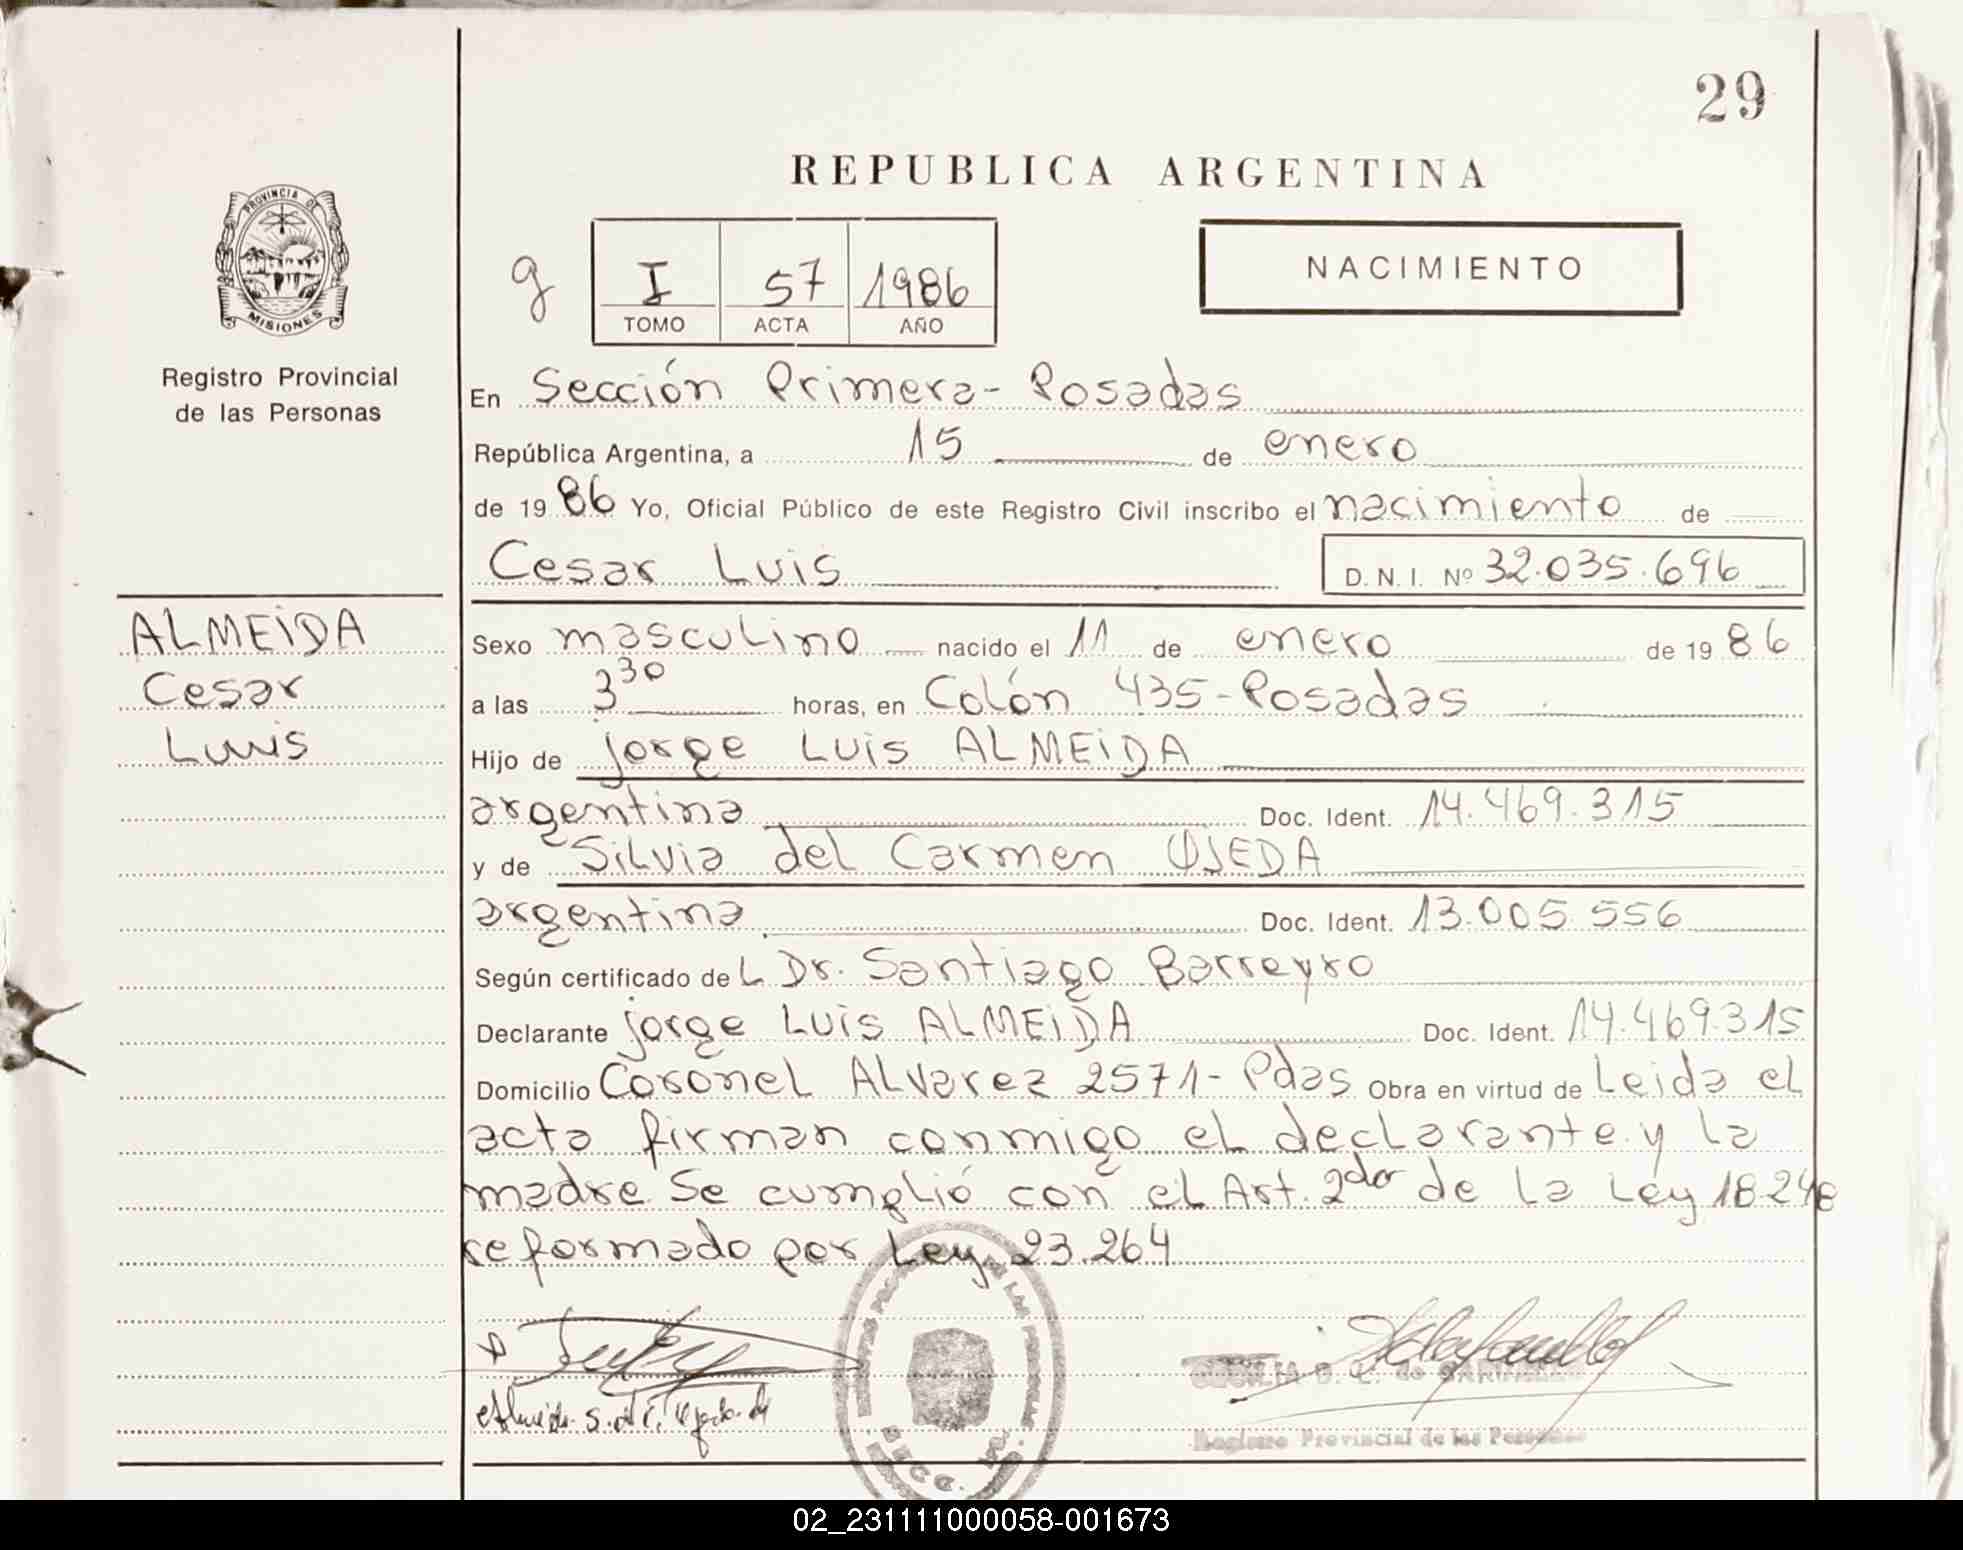 29
REPUBLICA ARGENTINA
PROVINCIA DE
MISIONES
Registro Provincial
de las Personas
g
I 57 1986
TOMO ACTA AÑO
NACIMIENTO
En Sección Primera- Posadas
República Argentina, a 15 de enero
de 1986 Yo, Oficial Público de este Registro Civil inscribo el nacimiento de
Cesar Luis D. N. I. Nº 32.035.696
ALMEIDA
Cesar
Luis
Sexo masculino nacido el 11 de enero de 1986
a las 3 30 horas, en Colón 435-Posadas
Hijo de Jorge Luis ALMEIDA
argentina Doc. Ident. 14.469.315
y de Silvia del Carmen OJEDA
argentina Doc. Ident. 13.005.556
Según certificado del Dr. Santiago Barreyro
Declarante Jorge Luis ALMEIDA Doc. Ident. 14.469.315
Domicilio Coronel Alvarez 2571- Pdas Obra en virtud de Leida el
acta firman conmigo el declarante y la
madre. Se cumplió con el Art. 2do de la Ley 18.248
reformado por Ley 23.264
Registro Provincial de las Personas
02_231111000058-001673